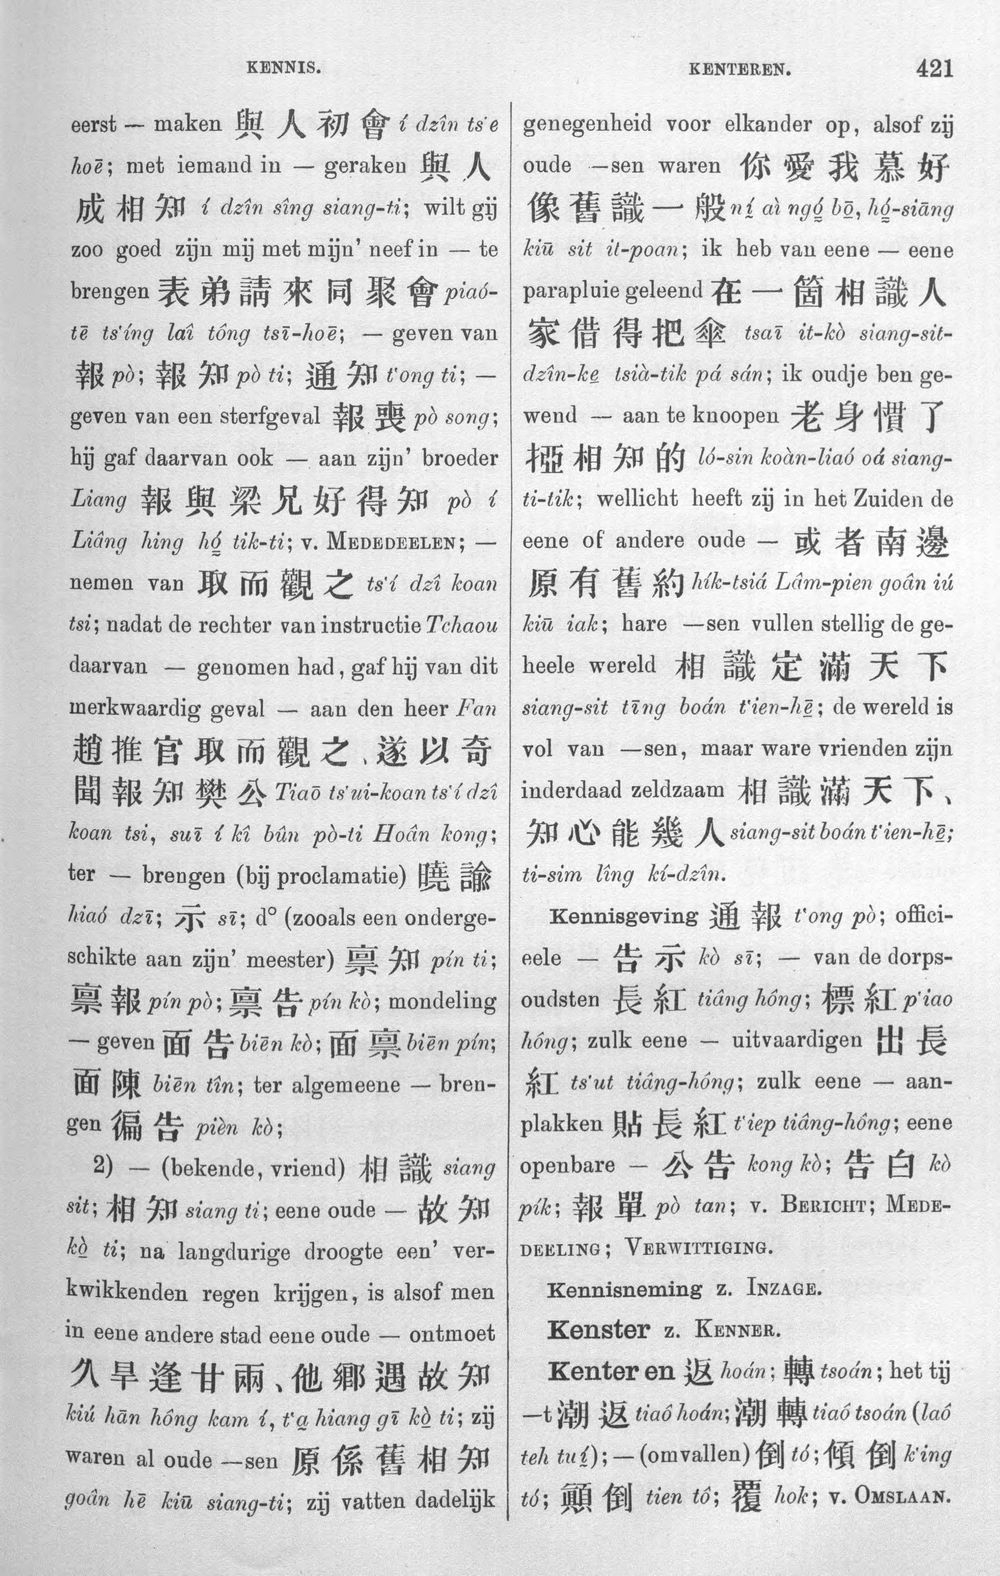 KENNIS.
KENTEREN.
421
eerst — maken 與人初會 í dzîn ts‘e
hoē; met iemand in — geraken 與人
成相知 í dzîn sîng siang-ti; wilt gij
zoo goed zijn mij met mijn’ neef in — te
brengen 表弟請來同聚會 piaó-
tē ts‘íng laî tông tsī-hoē; — geven van
報 pò; 報知 pò ti; 通知 t‘ong ti; —
geven van een sterfgeval 報喪 pò song;
hij gaf daarvan ook — aan zijn’ broeder
Liang 報與梁兄好得知 pò í
Liâng hing hó̱ tik-ti; v. MEDEDEELEN; —
nemen van 取而觀之 ts‘í dzî koan
tsi; nadat de rechter van instructie Tchaou
daarvan — genomen had, gaf hij van dit
merkwaardig geval — aan den heer Fan
趙推官取而觀之、遂以奇
聞報知樊公 Tiaō ts‘ui-koan ts‘í dzî
koan tsi, suī í kî bûn pò-ti Hoân kong;
ter — brengen (bij proclamatie) 曉諭
hiaó dzī; 示 sī; d° (zooals een onderge-
schikte aan zijn’ meester) 禀知 pín ti;
禀報 pín pò; 禀告 pín kò; mondeling
— geven 面告 biēn kò; 面禀 biēn pín;
面陳 biēn tîn; ter algemeene — bren-
gen 徧告 pièn kò;
2) — (bekende, vriend) 相識 siang
sit; 相知 siang ti; eene oude — 故知
kò̱ ti; na langdurige droogte een’ ver-
kwikkenden regen krijgen, is alsof men
in eene andere stad eene oude — ontmoet
久旱逢甘雨、他鄉遇故知
kiú hān hông kam í, t‘a̱ hiang gī kò̱ ti; zij
waren al oude —sen 原係舊相知
goân hē kiū siang-ti; zij vatten dadelijk
genegenheid voor elkander op, alsof zij
oude —sen waren 你愛我慕好
像舊識一般 ní̱ aì ngó̱ bō̱, hó̱-siāng
kiū sit it-poan; ik heb van eene — eene
parapluie geleend 在一箇相識人
家借得把傘 tsaī it-kò siang-sit-
dzîn-ke̱ tsià-tik pá sán; ik oudje ben ge-
wend — aan te knoopen 老身慣了
掗相知的 ló-sin koàn-liaó oá siang-
ti-tik; wellicht heeft zij in het Zuiden de
eene of andere oude — 或者南邊
原有舊約 hík-tsiá Lâm-pien goân iú
kiū iak; hare —sen vullen stellig de ge-
heele wereld 相識定滿天下
siang-sit tīng boán t‘ien-hē̱; de wereld is
vol van —sen, maar ware vrienden zijn
inderdaad zeldzaam 相識滿天下、
知心能幾人 siang-sit boán t‘ien-hē̱;
ti-sim lîng kí-dzîn.
Kennisgeving 通報 t‘ong pò; offici-
eele — 告示 kò sī; — van de dorps-
oudsten 長紅 tiâng hông; 標紅 p‘iao
hông; zulk eene — uitvaardigen 出長
紅 ts‘ut tiâng-hông; zulk eene — aan-
plakken 貼長紅 t‘iep tiâng-hông; eene
openbare — 公告 kong kò; 告白 kò
pík; 報單 pò tan; v. BERICHT; MEDE-
DEELING; VERWITTIGING.
Kennisneming z. INZAGE.
Kenster z. KENNER.
Kenteren 返 hoán; 轉 tsoán; het tij
—t 潮返 tiaô hoán; 潮轉 tiaô tsoán (laô
teh tuí̱); — (omvallen) 倒 tó; 傾倒 k‘ing
tó; 顚倒 tien tó; 覆 hok; v. OMSLAAN.